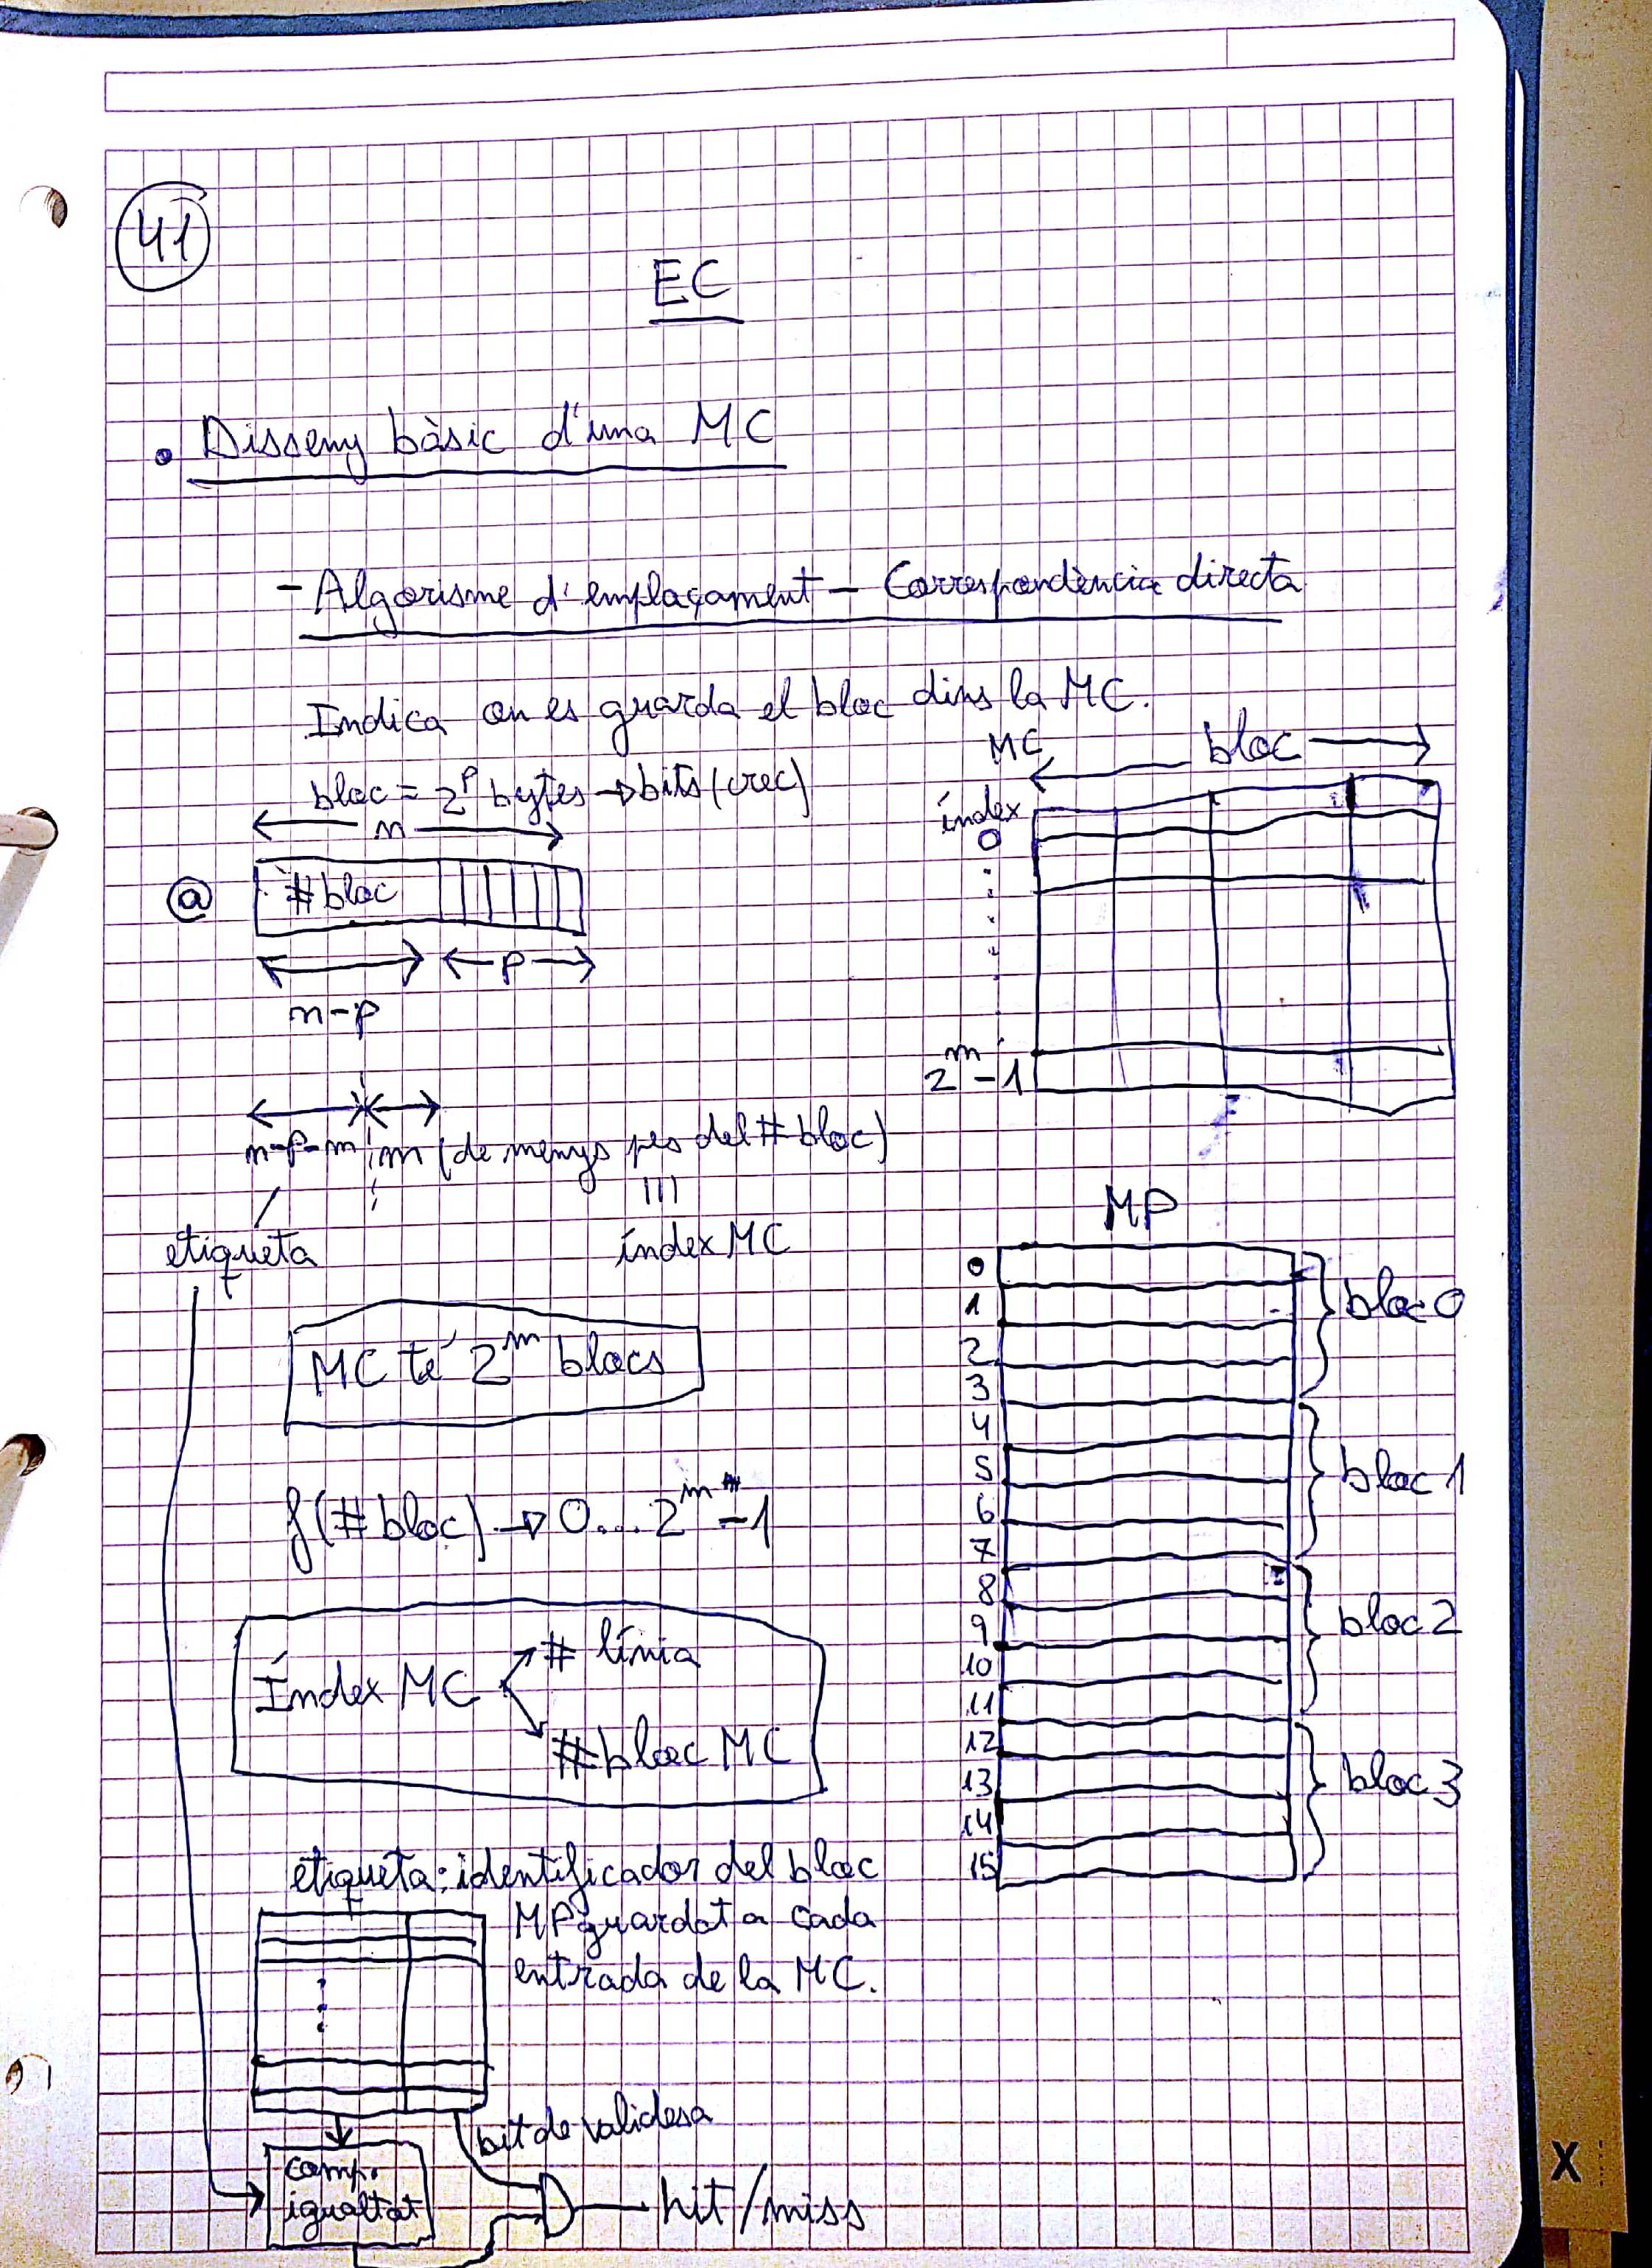 41
EC
• Disseny bàsic d'una MC
- Algorisme d'emplaçament - Correspondència directa
Indica on es guarda el bloc dins la MC.
bloc = 2^p bytes → bits (crec)
n
@ #bloc
n-p
p
n-p-m
m (de menys pes del #bloc)
etiqueta
índex MC
MC té 2^m blocs
f(#bloc) → 0...2^m-1
Índex MC
# línia
#bloc MC
etiqueta: identificador del bloc
MP guardat a cada
entrada de la MC.
bit de validesa
comp.
igualtat
hit/miss
MC
bloc
índex
0
2^m-1
MP
0
1
2
3
bloc 0
4
5
6
7
bloc 1
8
9
10
11
bloc 2
12
13
14
15
bloc 3
X